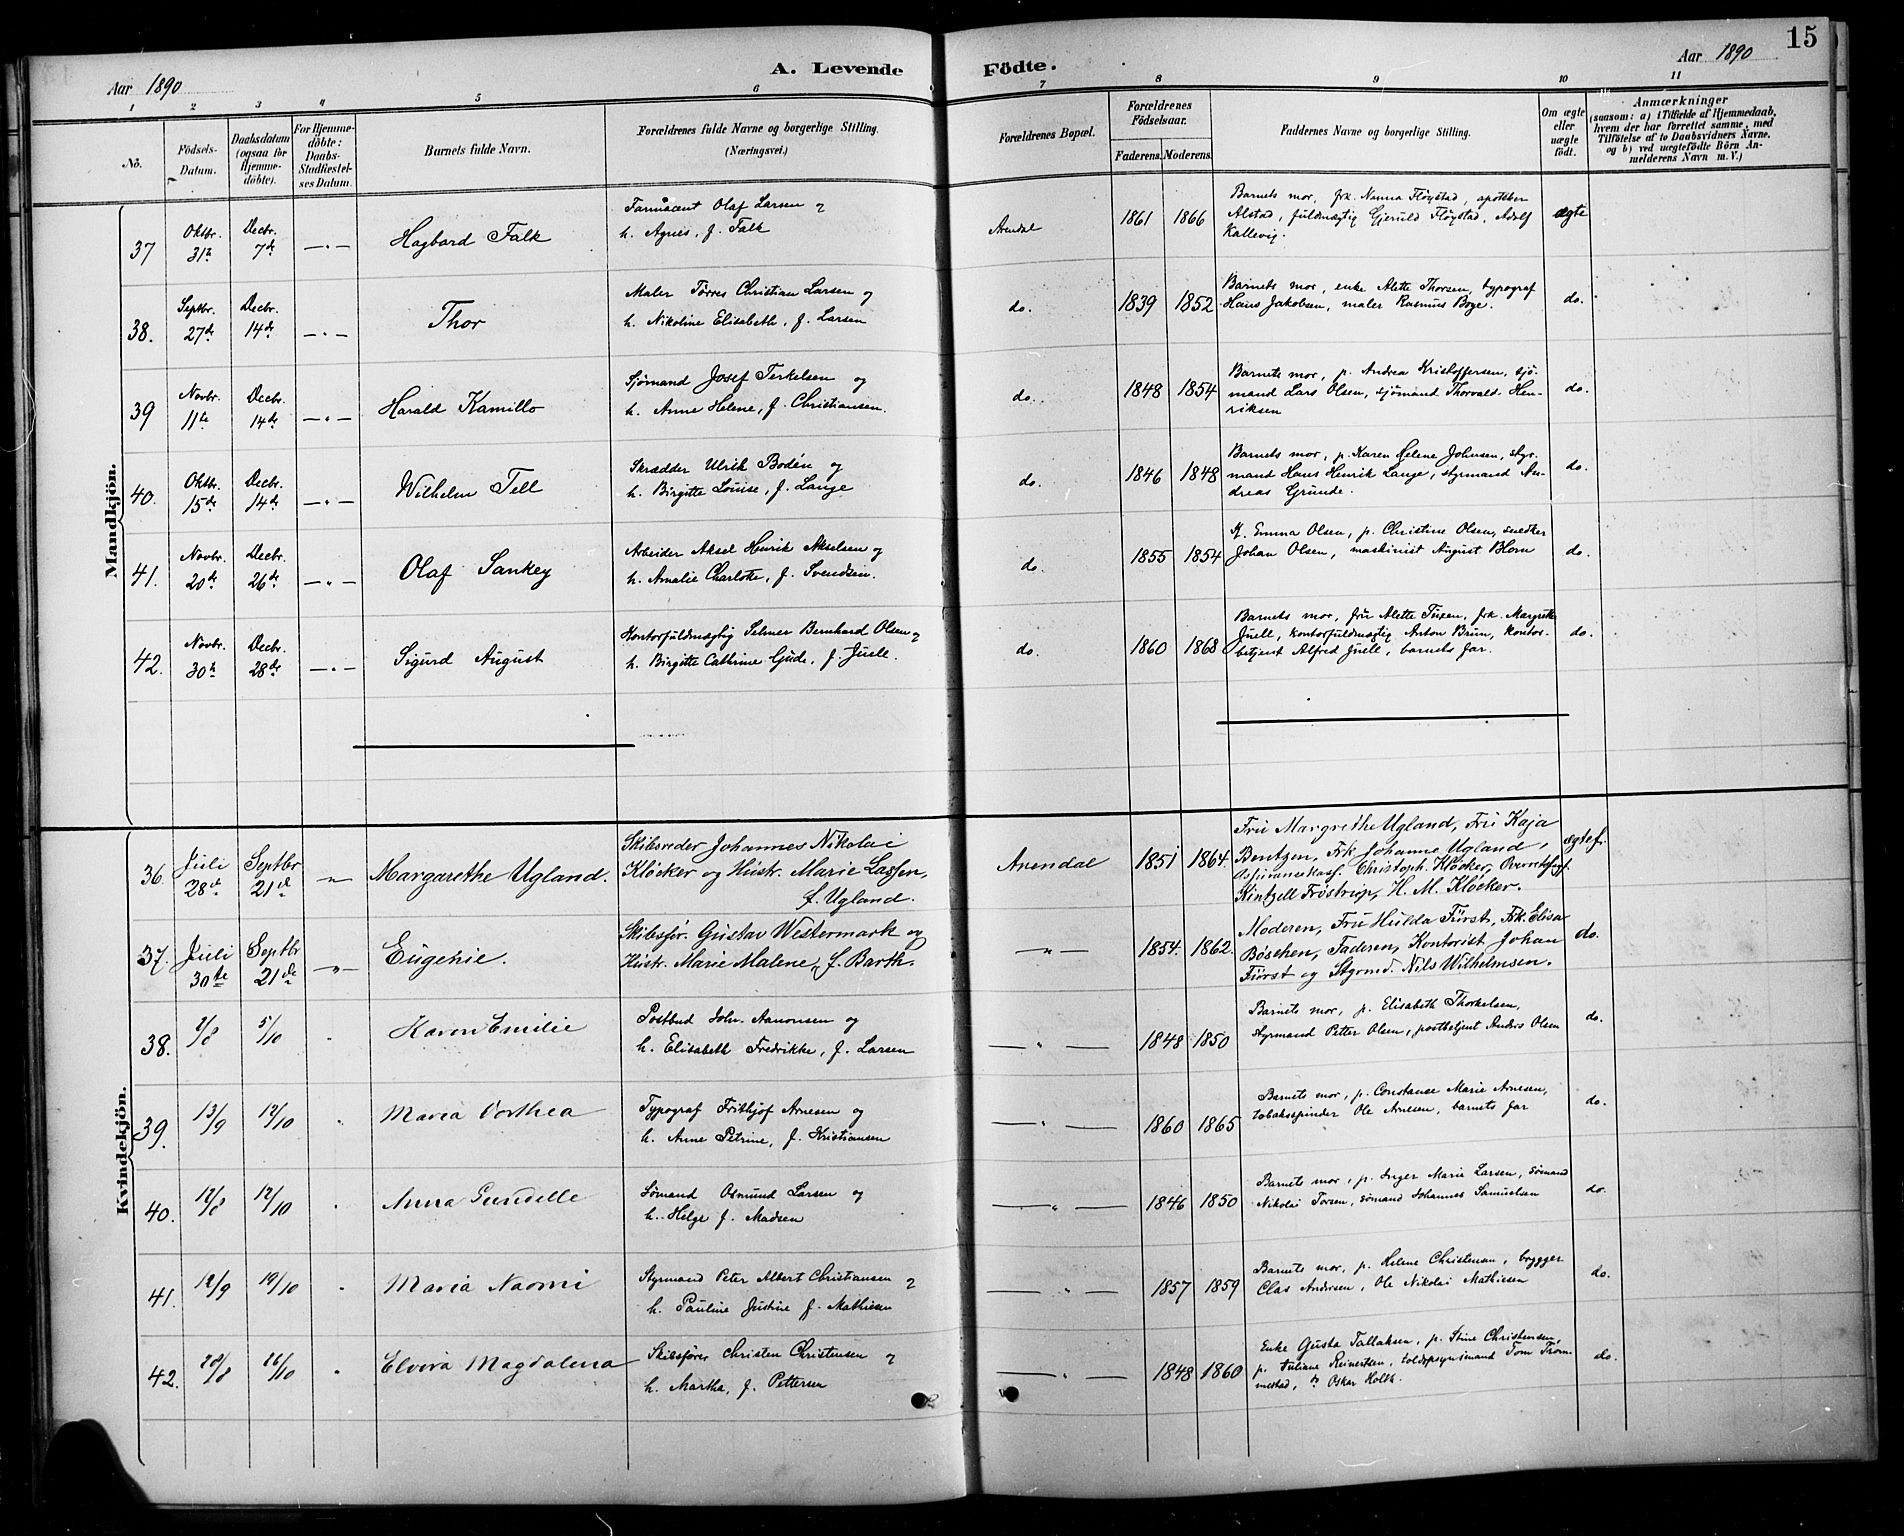 15
Aar 1890
A. Levende Födte.
Aar 1890
1 2 3 4 5 6 7 8 9 10 11
No.
Födsels-Datum.
Daabsdatum (ogsaa for Hjemmedöbte).
For Hjemmedöbte: Daabs-Stadfæstelses Datum.
Barnets fulde Navn.
Forældrenes fulde Navne og borgerlige Stilling. (Næringsvei.)
Forældrenes Bopæl.
Forældrenes Födselsaar.
Faderens. Moderens.
Faddernes Navne og borgerlige Stilling.
Om ægte eller uægte födt.
Anmærkninger
(saasom: a) i Tilfælde af Hjemmedaab,
hvem der har forrettet samme, med
Tilföielse af to Daabsvidners Navne,
og b) ved uægtefödte Börn Anmelderens Navn m. V.)
Mandkjön.
37 Oktbr. 31te Decbr. 7de —„— Hagbard Falk
Farmaceut Olaf Larsen og
h. Agnes, f. Falk
Arendal 1861 1866
Barnets mor, frk. Nanna Fløystad, apoteker
Alstad, fuldmægtig Gjeruld Fløystad, Adolf
Kallevig.
ægte
38. Septbr. 27de Decbr. 14de —„— Thor
Maler Tørres Christian Larsen og
h. Nikoline Elisabeth, f. Larsen
do. 1839 1852
Barnets mor, enke Alette Thorsen, typograf
Hans Jakobsen, maler Rasmus Boye.
do.
39 Novbr. 11te Decbr. 14de —„— Harald Kamillo
Sjømand Josef Terkelsen og
h. Anne Helene, f. Christiansen.
do. 1848 1854
Barnets mor, p. Andrea Kristoffersen, sjømand Lars Olsen, sjømand Thorvald Henriksen
do.
40. Oktbr. 15de Decbr. 14de —„— Wilhelm Tell
Skrædder Ulrik Bodén og
h. Birgitte Louise, f. Lange
do. 1846 1848
Barnets mor, p. Karen Helene Johnsen, styrmand Hans Henrik Lange, styrmand Andreas Grunde.
do.
41. Novbr. 20de Decbr. 26de —„— Olaf Sankey
Arbeider Aksel Henrik Akselsen og
h. Amalie Charlotte, f. Svendsen.
do. 1855 1854
K. Emma Olsen, p. Christine Olsen, snedker
Johan Olsen, maskinist August Blom
do.
42. Novbr. 30te Decbr. 28de —„— Sigurd August
Kontorfuldmægtig Selmer Bernhard Olsen og
h. Birgitte Cathrine Gude, f. Juell.
do. 1860 1868
Barnets mor, fru Alette Tueen, frk. Margrethe
Juell, kontorfuldmægtig Anton Brun, kontorbetjent Alfred Juell, barnets far.
do.
Kvindekjön.
36. Juli 28de Septbr 21de —„— Margarethe Ugland.
Skibsreder Johannes Nikolai
Kløcker og Hustr. Marie Lassen,
f. Ugland.
Arendal 1851 1864.
Fru Margrethe Ugland, Fru Kaja
Bentzen, Frk Johanne Ugland,
Christoph. Kløcker, Overretssagf.
Kintzell Frøstrup, H. M. Kløcker.
ægtef.
37. Juli 30te Septbr 21de —„— Eugenie.
Skibsfør. Gustav Westermark og
Hustr. Marie Malene, f. Barth.
—„— 1854. 1862.
Moderen, Fru Hulda Fürst, Frk. Elisa
Bøschen, Faderen, Kontorist Johan
Fürst og Styrmd. Nils Wilhelmsen.
do.
38. 2/8 5/10 „ Karen Emilie
Postbud Joh. Aanonsen og
h. Elisabeth Fredrikke, f. Larsen
—„— 1848 1850
Barnets mor, p. Elisabeth Thorkelsen,
styrmand Petter Olsen, postbetjent Anders Olsen
do.
39. 13/9 12/10 „ Maria Dorthea
Typograf Frithjof Arnesen og
h. Anne Petrine, f. Kristiansen
—„— 1860 1865
Barnets mor, p. Constance Marie Arnesen,
tobaksspinder Ole Arnesen, barnets far
do.
40. 12/8 12/10 „ Anna Gundelle
Sømand Osmund Larsen og
h. Helge f. Madsen
—„— 1846 1850
Barnets mor, p. Inger Marie Larsen, sømand
Nikolai Torsen, sømand Johannes Samuelsen
do.
41. 12/9 19/10 „ Maria Naomi
Styrmand Peter Albert Christiansen og
h. Pauline Justine f. Mathiesen
—„— 1857 1859
Barnets mor, p. Helene Christensen, brygger
Clas Andersen, Ole Nikolai Mathiesen
do.
42. 28/8 26/10 „ Elvira Magdalena
Skibsfører Christen Christensen og
h. Martha, f. Pettersen
—„— 1848 1860
Enke Gusta Tallaksen, p. Stine Christensen,
p. Juliane Reinertsen, toldopsynsmand Tom Trommestad, do Oskar Holth.
do.